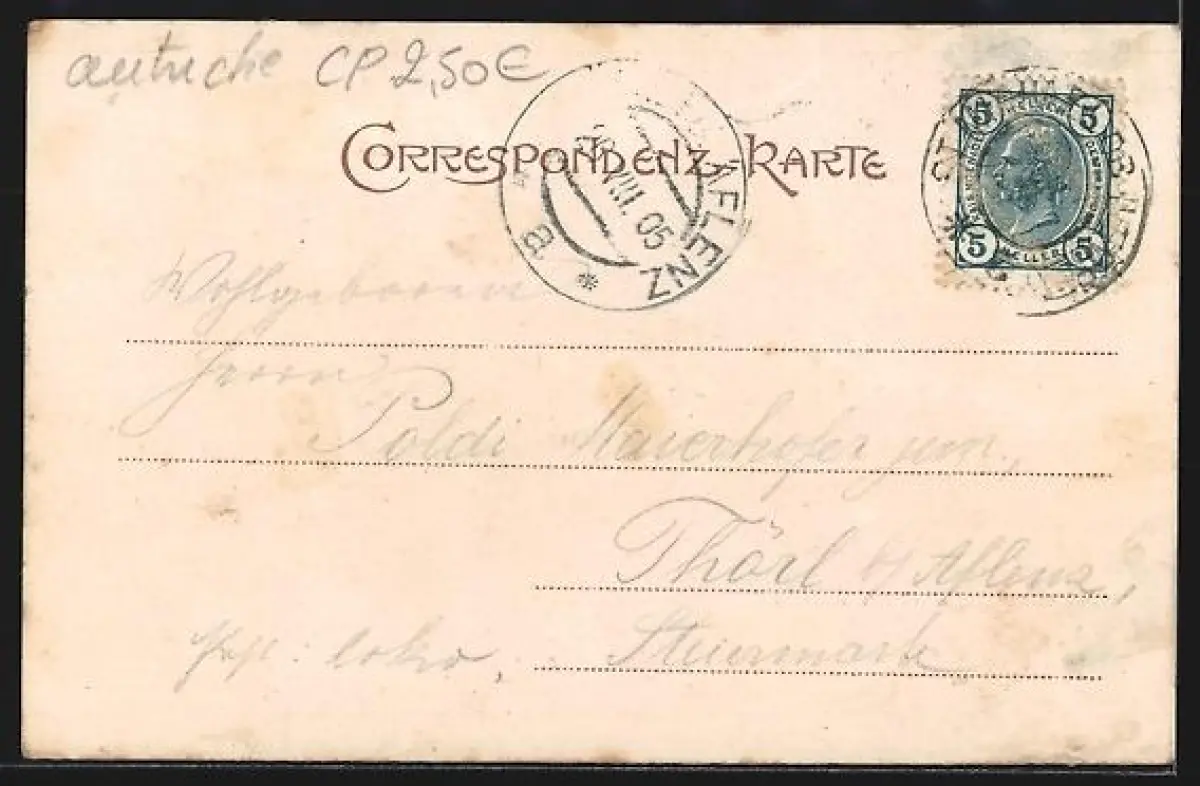 autriche CP 2,50€
CORRESPONDENZ-KARTE
5 5
5 HELLER 5
AFLENZ
VIII. 05
a *
Wohlgeboren
Herrn
Poldi Maierhofer jun.,
Thörl b/ Aflenz,
Steiermark